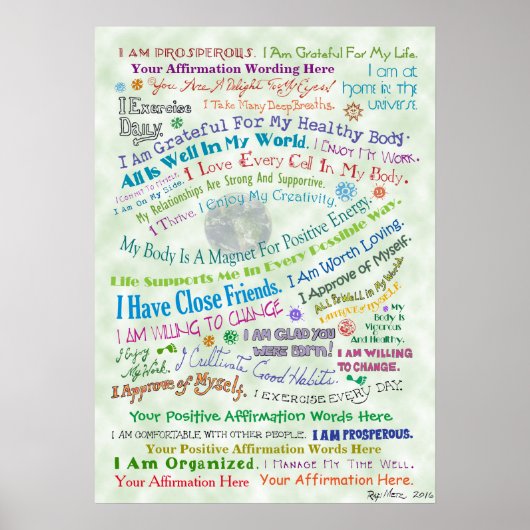 I AM PROSPEROUS. I Am Grateful For My Life.
Your Affirmation Wording Here
I am at
home in the
universe.
You Are A Delight To My Eyes!
I Exercise
Daily.
I Take Many Deep Breaths.
I Am Grateful For My Healthy Body.
All Is Well In My World. I Enjoy My Work.
I Commit To Myself.
I am On My Side.
I Love Every Cell In My Body.
My Relationships Are Strong And Supportive.
I Thrive. I Enjoy My Creativity.
My Body Is A Magnet For Positive Energy.
Life Supports Me In Every Possible Way.
I Am Worth Loving.
I Have Close Friends.
I Approve of Myself.
All Is Well in My World.
I APPROVE of MYSELF
I AM WILLING TO CHANGE
My
Body Is
Vigorous
And
Healthy.
I AM GLAD YOU
WERE BORN!
I Enjoy
My Work.
I Cultivate Good Habits.
I AM WILLING
TO CHANGE.
I Approve of Myself.
I EXERCISE EVERY DAY.
Your Positive Affirmation Words Here
I AM COMFORTABLE WITH OTHER PEOPLE. I AM PROSPEROUS.
Your Positive Affirmation Words Here
I Am Organized. I Manage My Time Well.
Your Affirmation Here Your Affirmation Here.
2016